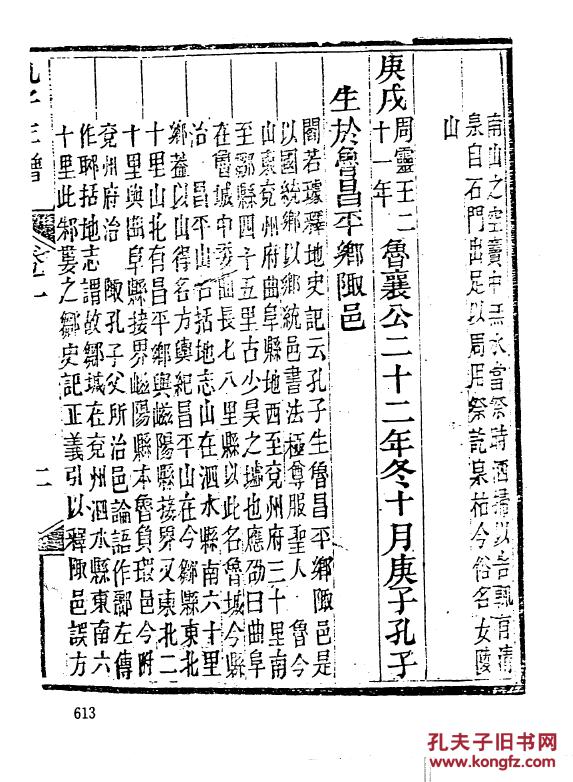 南山之空竇中無水當祭時洒掃以告輒有清
泉自石門出足以周用祭訖泉枯今俗名女陵
山
庚戌周靈王二十一年魯襄公二十二年冬十月庚子孔子
生於魯昌平鄉陬邑
閻若璩釋地史記云孔子生魯昌平鄉陬邑是
以國統鄉以鄉統邑書法極尊服聖人 魯今
山東兖州府曲阜縣地西至兖州府三十里南
至鄒縣四十五里古少昊之墟也應劭曰曲阜
在魯城中委曲長七八里縣以此名魯城今縣
治 昌平山名括地志山在泗水縣南六十里
鄉蓋以山得名方輿紀昌平山在今鄒縣東北
十里山北有昌平鄉與嵫陽縣接界又東北二
十里與曲阜縣接界嵫陽縣本魯負瑕邑今附
兖州府治 陬孔子父所治邑論語作鄹左傳
作郰括地志謂故鄒城在兖州泗水縣東南六
十里此邾婁之鄒史記正義引以釋陬邑誤方
二
613
孔夫子旧书网
www.kongfz.com